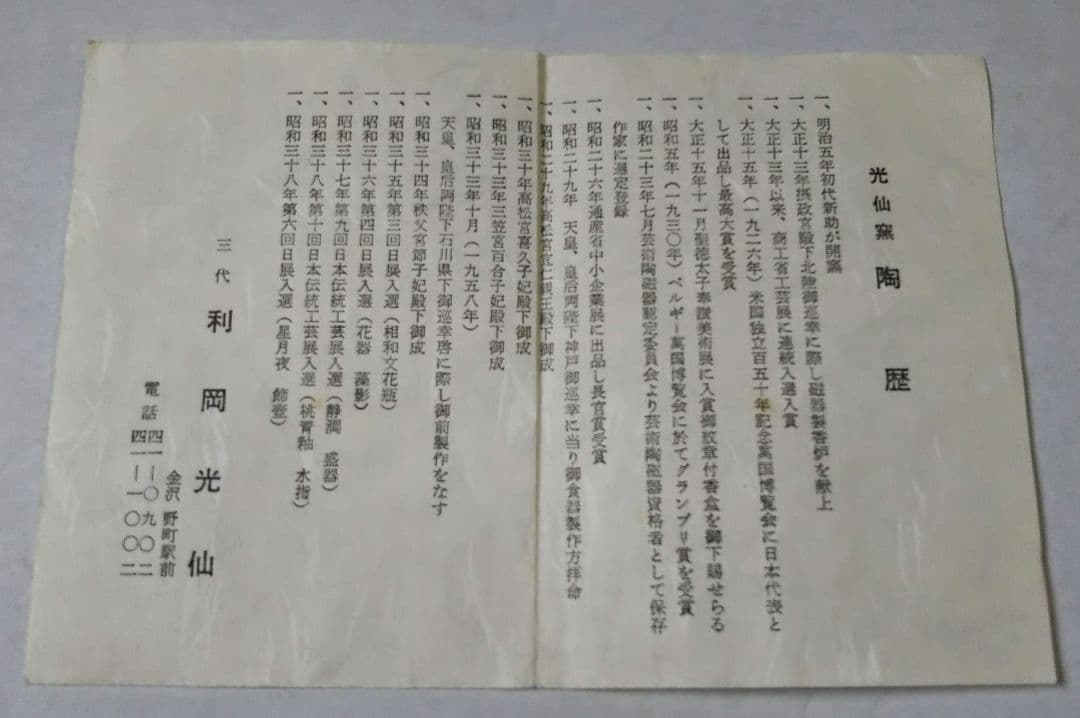 光仙窯 陶歴
一、明治五年初代新助が開窯
一、大正十三年摂政宮殿下北陸御巡幸に際し磁器製香炉を献上
一、大正十三年以来、商工省工芸展に連続入選入賞
一、大正十五年(一九二六年)米国独立百五十年記念萬国博覧会に日本代表と
して出品し最高大賞を受賞
一、大正十五年十一月聖徳太子奉讃美術展に入賞御紋章付香盒を御下賜せらる
一、昭和五年(一九三〇年)ベルギー萬国博覧会に於てグランプリ賞を受賞
一、昭和二十三年七月芸術陶磁器認定委員会より芸術陶磁器資格者として保存
作家に選定登録
一、昭和二十六年通産省中小企業展に出品し長官賞受賞
一、昭和二十九年 天皇、皇后両陛下神戸御巡幸に当り御食器製作方拝命
一、昭和二十九年高松宮宣仁親王殿下御成
一、昭和三十年高松宮喜久子妃殿下御成
一、昭和三十三年三笠宮百合子妃殿下御成
一、昭和三十三年十月(一九五八年)
天皇、皇后両陛下石川県下御巡幸啓に際し御前製作をなす
一、昭和三十四年秩父宮節子妃殿下御成
一、昭和三十五年第三回日展入選(相和文花瓶)
一、昭和三十六年第四回日展入選(花器 藻影)
一、昭和三十七年第九回日本伝統工芸展入選(静澗 盛器)
一、昭和三十八年第十回日本伝統工芸展入選(桃青釉 水指)
一、昭和三十八年第六回日展入選(星月夜 飾壷)
三代 利岡光仙
金沢 野町駅前
電話 四一―〇九〇二
四一―一〇〇二